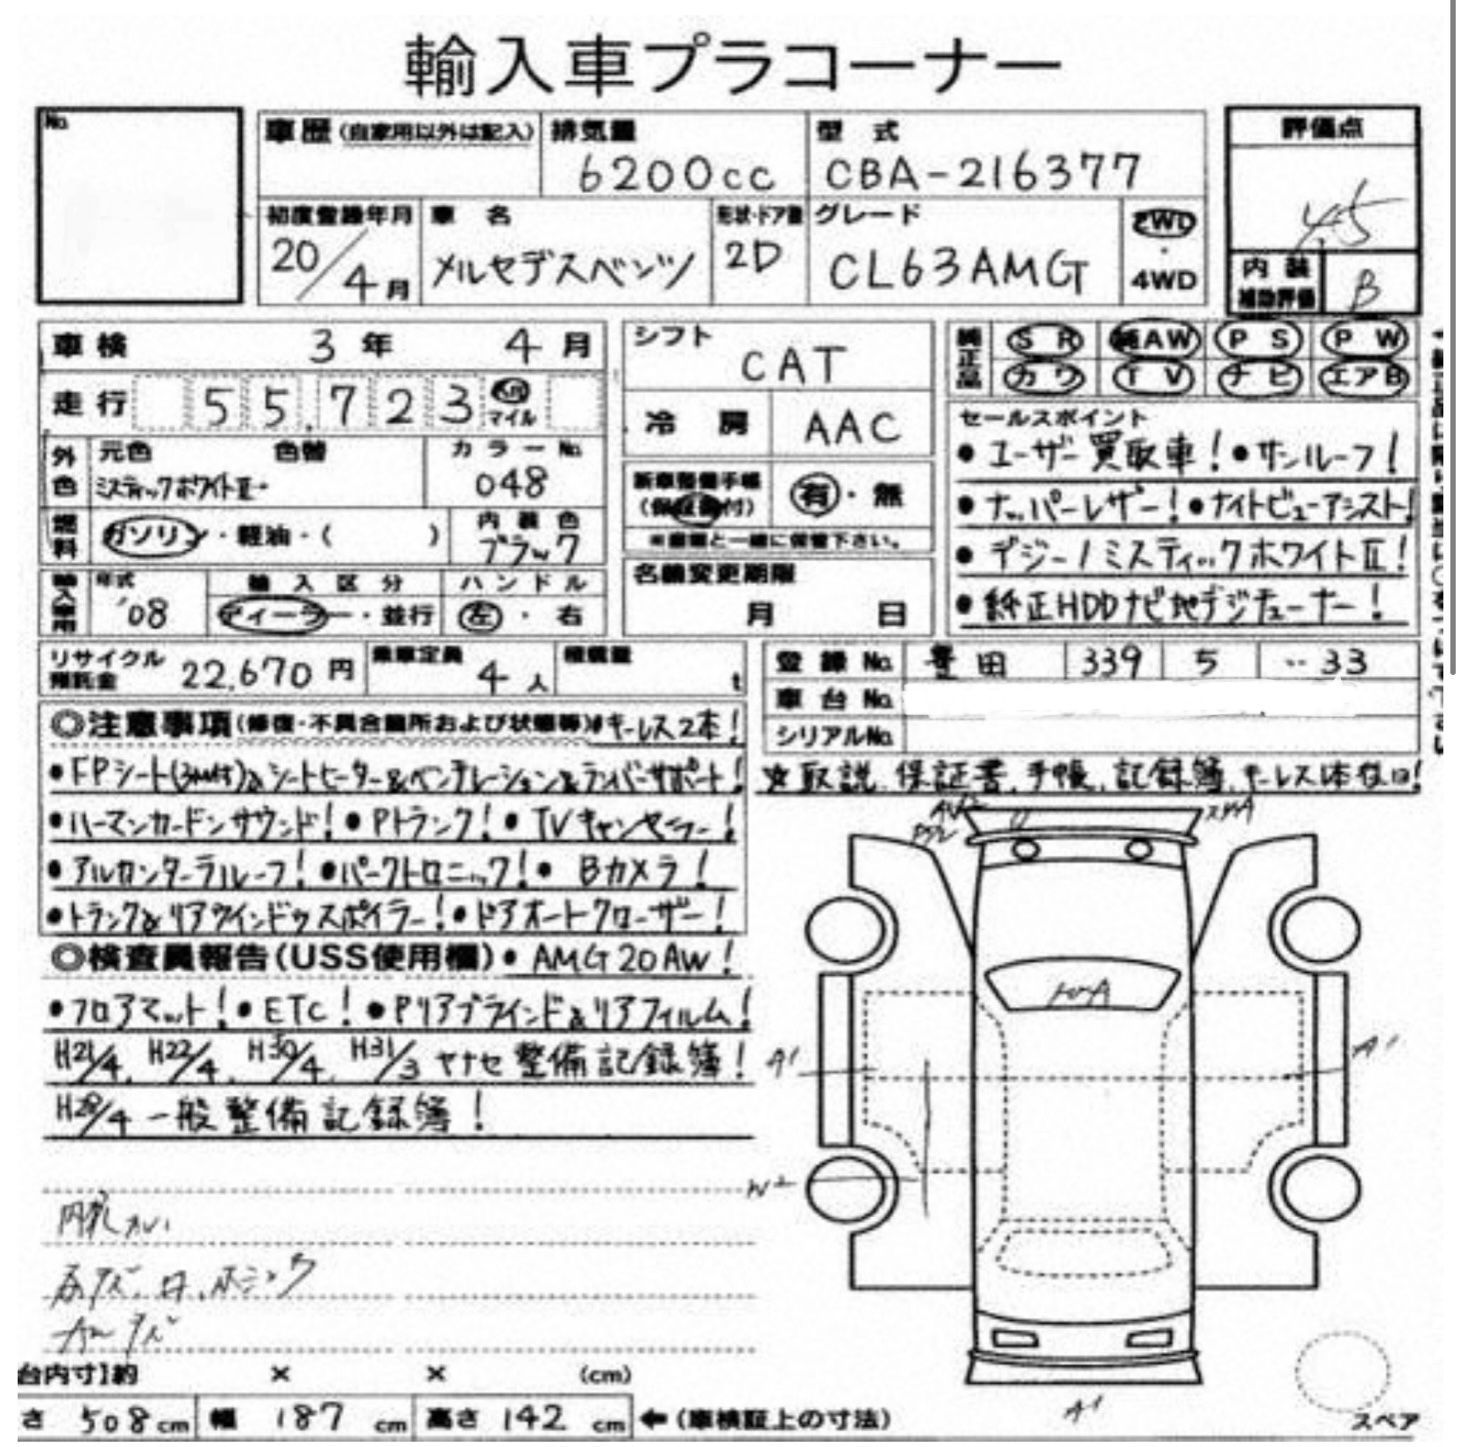 輸入車プラコーナー
No.
車歴(自家用以外は記入) 排気量 型式 評価点
6200cc CBA-216377
4.5
初度登録年月 車名 形状・ドア数 グレード 2WD
20/4月 メルセデスベンツ 2D CL63AMG ・ 4WD
内装補助評価 B
車検 3年 4月
シフト CAT
純正品 SR 純AW PS PW
カワ TV ナビ エアB
走行 55,723 km マイル
冷房 AAC
セールスポイント
•ユーザー買取車!•サンルーフ!
外色 元色 色替 カラーNo.
ミスティックホワイトII 048
新車整備手帳(保証書付) 有・無
※書類と一緒に保管下さい。
•ナッパーレザー!•ナイトビューアシスト!
燃料 ガソリン・軽油・( ) 内装色 ブラック
•デジーノミスティックホワイトII!
名義変更期限
月 日
輸入車用 年式 '08 輸入区分 ディーラー・並行 ハンドル 左・右
•純正HDDナビ地デジチューナー!
リサイクル預託金 22,670円 乗車定員 4人 積載量 t
登録No. 豊田 339 5 ··33
車台No.
シリアルNo.
◎注意事項(修復・不具合箇所および状態等) キーレス2本!
•FPシート(3M付)&シートヒーター&ベンチレーション&ランバーサポート!
☆取説、保証書、手帳、記録簿、キーレス1本なロ!
•ハーマンカードンサウンド!•Pトランク!•TVキャンセラー!
•アルカンターラルーフ!•パークトロニック!•Bカメラ!
•トランク&リアウインドウスポイラー!•ドアオートクローザー!
◎検査員報告(USS使用欄)•AMG20AW!
•フロアマット!•ETC!•Pリアブラインド&リアフィルム!
H21/4、H22/4、H30/4、H31/3 ヤナセ整備記録簿!
H28/4 一般整備記録簿!
A1
A1
W2
A1
台内寸]約 × × (cm)
さ 508cm 幅 187cm 高さ 142cm ←(車検証上の寸法)
スペア